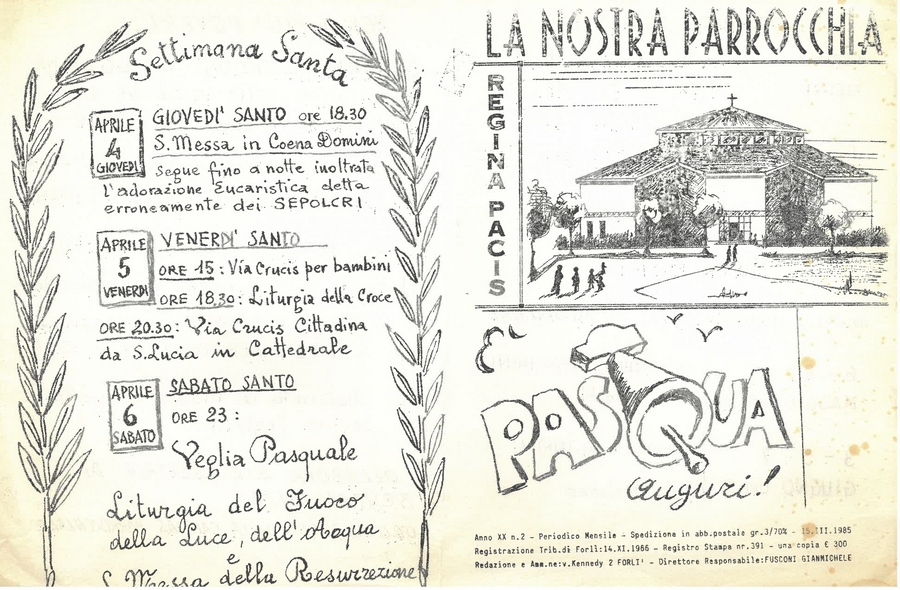 Settimana Santa
APRILE
4
GIOVEDI
GIOVEDI' SANTO ore 18.30
S. Messa in Coena Domini
Segue fino a notte inoltrata
l'adorazione Eucaristica detta
erroneamente dei SEPOLCRI
APRILE
5
VENERDI
VENERDI' SANTO
ORE 15: Via Crucis per bambini
ORE 18,30: Liturgia della Croce
ORE 20.30: Via Crucis Cittadina
da S. Lucia in Cattedrale
APRILE
6
SABATO
SABATO SANTO
ORE 23:
Veglia Pasquale
Liturgia del Fuoco
della Luce, dell'Acqua
e
S. Messa della Resurrezione
LA NOSTRA PARROCCHIA
REGINA PACIS
È
PASQUA
auguri!
Anno XX n.2 - Periodico Mensile - Spedizione in abb.postale gr.3/70% - 15.III.1985
Registrazione Trib.di Forlì:14.XI.1966 - Registro Stampa nr.391 - una copia £ 300
Redazione e Amm.ne:v.Kennedy 2 FORLI' - Direttore Responsabile:FUSCONI GIANMICHELE